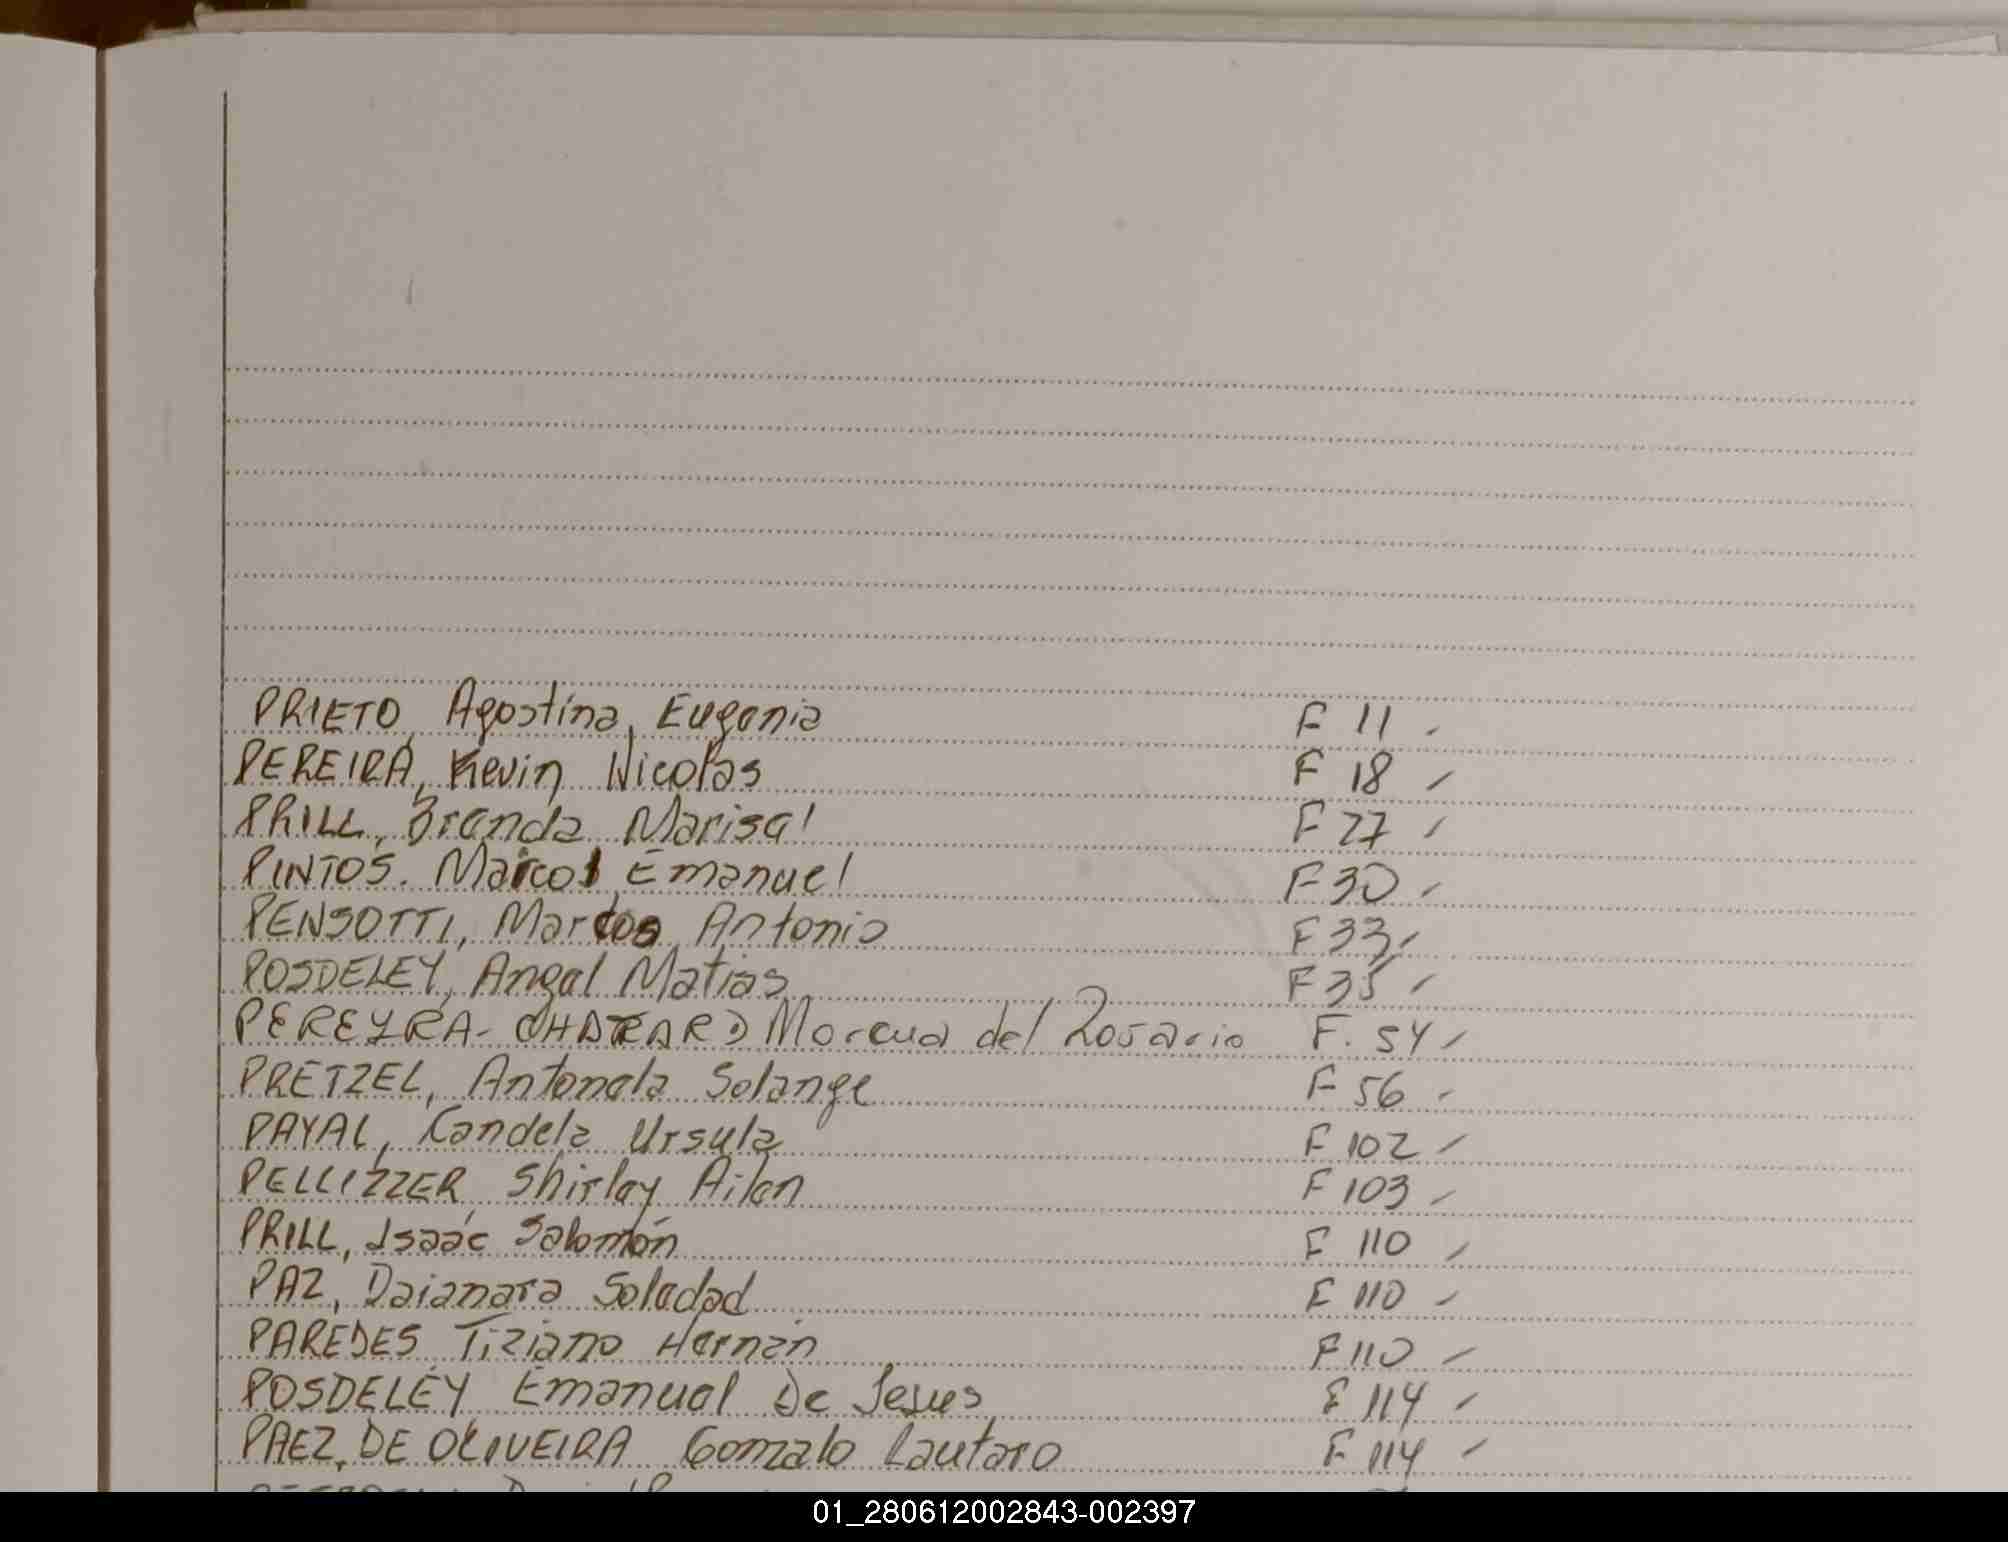 PRIETO, Agostina, Eugenia F 11
PEREIRA, Kevin Nicolas F 18
PRILL, Brenda Marisel F 27
PINTOS. Marcos Emanuel F 30
PENSOTTI, Marcos Antonio F 33
POSDELEY, Angel Matias F 35
PEREYRA-CHATARD Morena del Rosario F. 54
PRETZEL, Antonela Solange F 56
PAYAL, Candela Ursula F 102
PELLIZZER, Shirley Ailen F 103
PRILL, Isaác Salomón F 110
PAZ, Daianara Soledad F 110
PAREDES, Tiziano Hernán F 110
POSDELEY Emanuel De Jesus F 114
PAEZ, DE OLIVEIRA Gonzalo Lautaro F 114
01_280612002843-002397